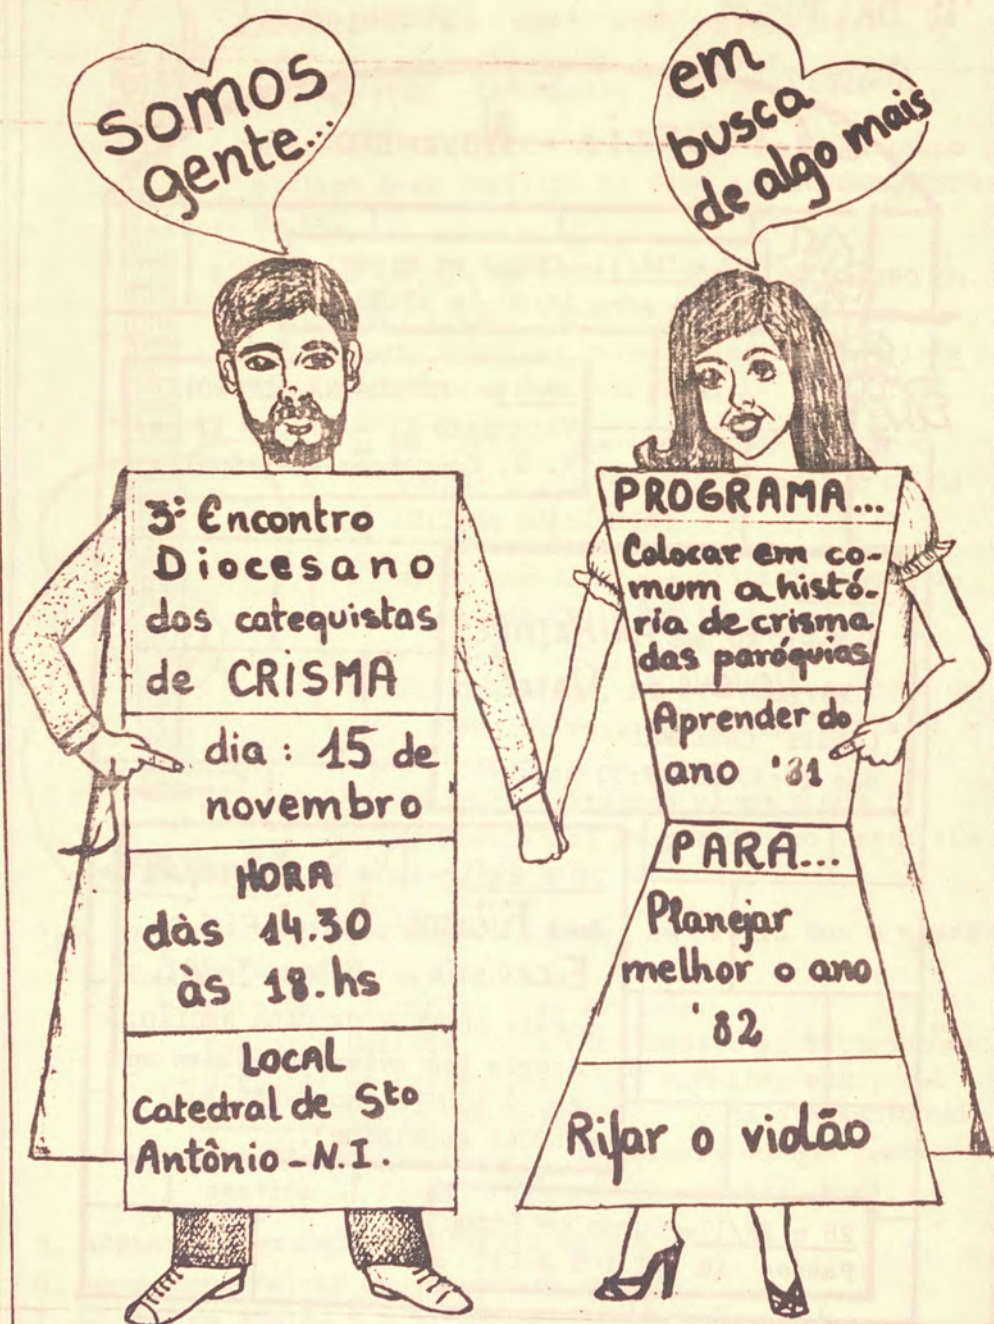 somos
gente...
em
busca
de algo mais
3º Encontro
Diocesano
dos catequistas
de CRISMA
dia : 15 de
novembro
HORA
dàs 14.30
às 18.hs
LOCAL
Catedral de Sto
Antônio - N.I.
PROGRAMA...
Colocar em co-
mum a histó-
ria de crisma
das paróquias
Aprender do
ano '81
PARA...
Planejar
melhor o ano
'82
Rifar o violão